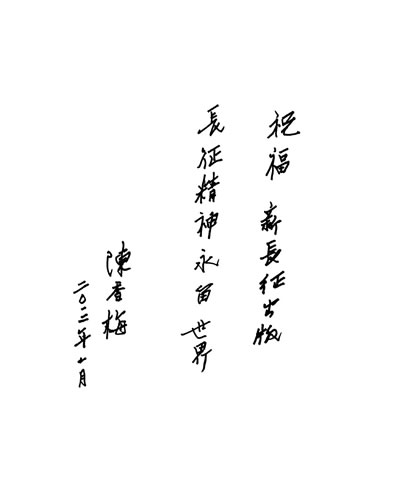 祝福 新長征出版
長征精神永留世界
陳香梅
二〇一二年十月